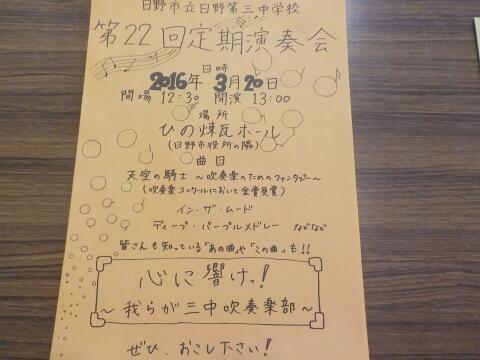 日野市立日野第三中学校
第22回定期演奏会
日時
2016年 3月20日
開場 12:30 開演 13:00
場所
ひの煉瓦ホール
(日野市役所の隣)
曲目
天空の騎士 ～吹奏楽のためのファンタジー～
(吹奏楽コンクールにおいて金賞受賞)
イン・ザ・ムード
ディープ・パープルメドレー などなど
皆さんも知っている「あの曲」や「この曲」も!!
心に響けっ!
～我らが三中吹奏楽部～
ぜひ、おこし下さい!